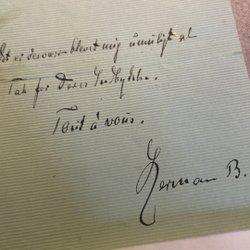 det er desværre blevet mig umuligt at
Tak for Deres Indbydelse.
Tout à vous.
Herman B.